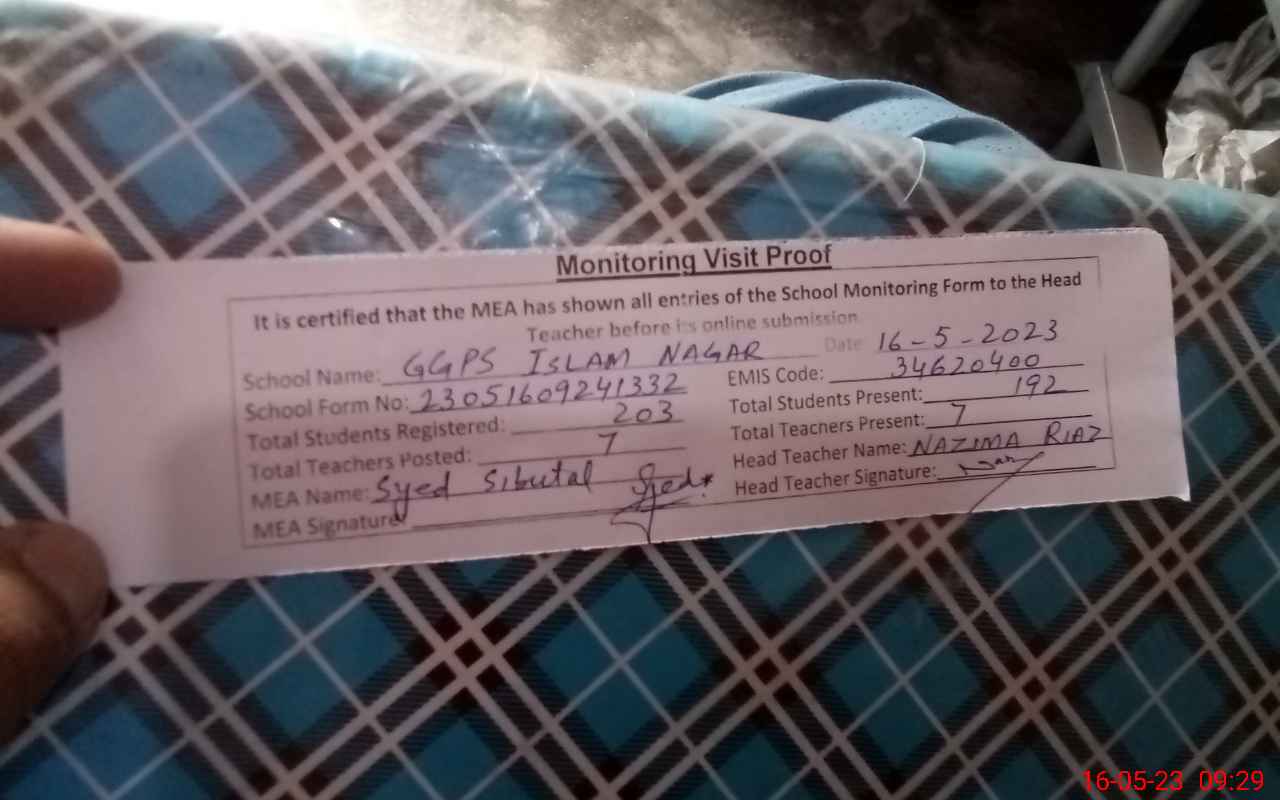 Monitoring Visit Proof
It is certified that the MEA has shown all entries of the School Monitoring Form to the Head
Teacher before its online submission.
Date: 16-5-2023
School Name: GGPS ISLAM NAGAR
EMIS Code: 34620400
School Form No: 23051609241332
Total Students Present: 192
Total Students Registered: 203
Total Teachers Present: 7
Total Teachers Posted: 7
Head Teacher Name: NAZIMA RIAZ
MEA Name: Syed Sibutal
Head Teacher Signature:
MEA Signature:
16-05-23 09:29